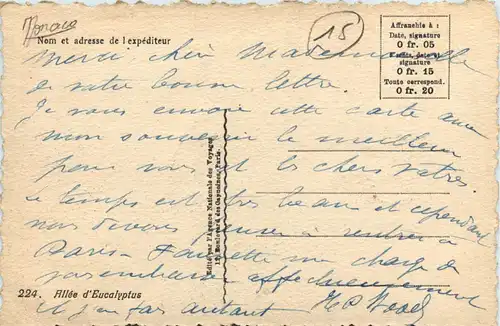 Monaco
15
Nom et adresse de l'expéditeur
Affranchir à :
Date, signature
0 fr. 05
signature
0 fr. 15
Toute correspond.
0 fr. 20
Merci chère Mademoiselle
de votre bonne lettre.
Je vous envoie cette carte avec
mon souvenir le meilleur
pour vous et les chers vôtres.
Le temps est très beau et cependant
nous devons penser à rentrer à
Paris. me charge de
vous embrasser affectueusement
et j'en fais autant
Edité par l'Agence Nationale des Voyages
12, Boulevard des Capucines, Paris.
224. Allée d'Eucalyptus